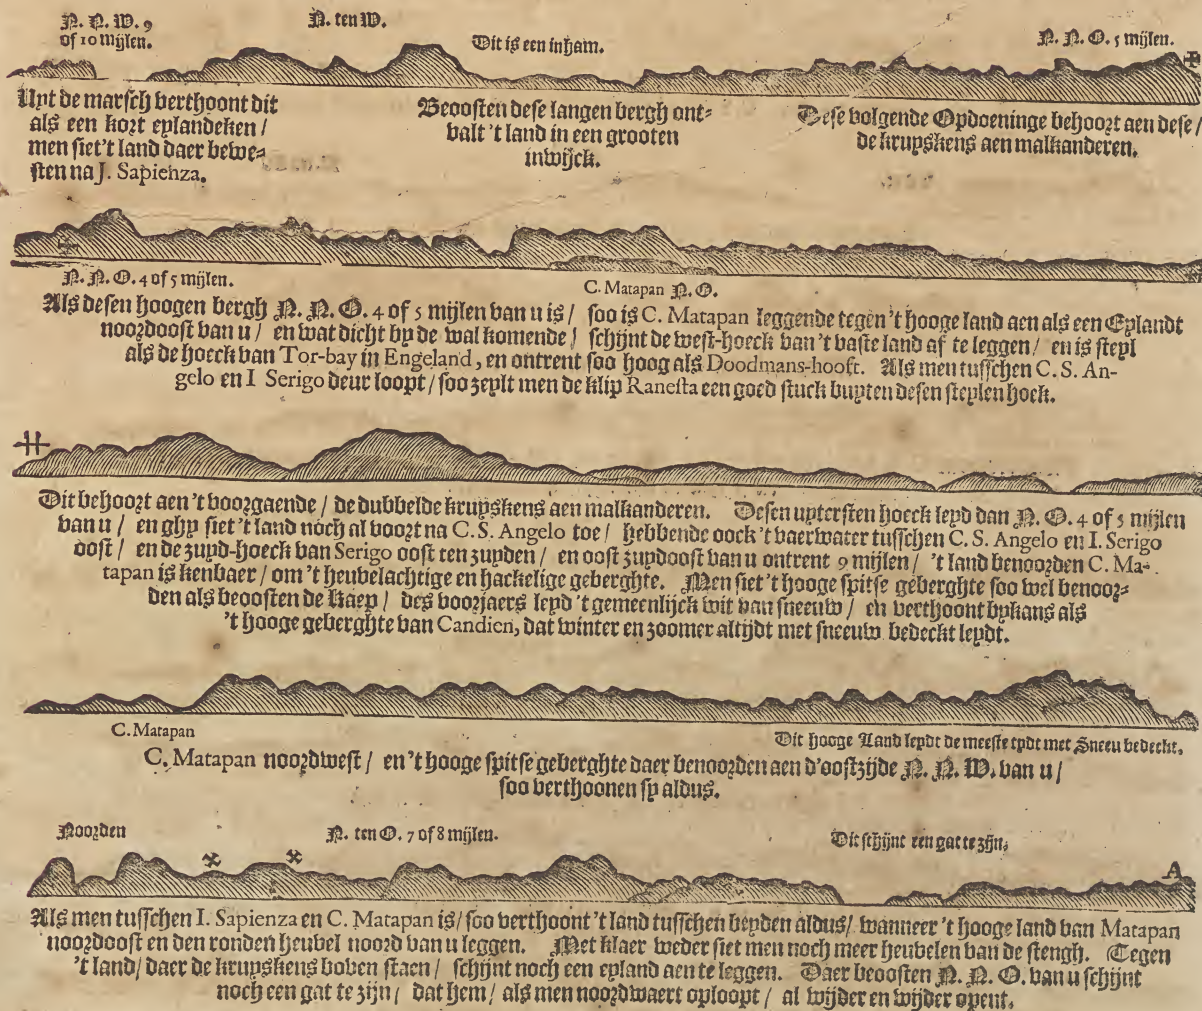 N. N. W. 9
of 10 mijlen.
N. ten W.
Dit is een inham.
N. N. O. 5 mijlen.
Uyt de marsch verthoont dit
als een kort eylandeken /
men siet 't land daer bewe-
sten na J. Sapienza.
Beoosten dese langen bergh ont-
valt 't land in een grooten
inwijck.
Dese volgende Opdoeninge behoort aen dese /
de kruyskens aen malkanderen.
N. N. O. 4 of 5 mijlen.
C. Matapan N. O.
Als desen hoogen bergh N. N. O. 4 of 5 mijlen van u is / soo is C. Matapan leggende tegen 't hooge land aen als een Eylandt
noordoost van u / en wat dicht by de wal komende / schijnt de west-hoeck van 't vaste land af te leggen / en is steyl
als de hoeck van Tor-bay in Engeland, en ontrent soo hoog als Doodmans-hooft. Als men tusschen C. S. An-
gelo en I Serigo deur loopt / soo zeylt men de klip Ranesta een goed stuck buyten desen steylen hoek.
Dit behoort aen 't voorgaende / de dubbelde kruyskens aen malkanderen. Desen uytersten hoeck leyd dan N. O. 4 of 5 mijlen
van u / en ghy siet 't land noch al voort na C. S. Angelo toe / hebbende oock 't vaerwater tusschen C. S. Angelo en I. Serigo
oost / en de zuyd-hoeck van Serigo oost ten zuyden / en oost zuydoost van u ontrent 9 mijlen / 't land benoorden C. Ma-
tapan is kenbaer / om 't heubelachtige en hackelige geberghte. Men siet 't hooge spitse geberghte soo wel benoor-
den als beoosten de Kaep / des voorjaers leyd 't gemeenlijck wit van sneeuw / en verthoont bykans als
't hooge geberghte van Candien, dat winter en zoomer altijdt met sneeuw bedeckt leydt.
C. Matapan
Dit hooge Land leydt de meeste tydt met Sneeu bedeckt.
C. Matapan noordwest / en 't hooge spitse geberghte daer benoorden aen d'oostzijde N. N. W. van u /
soo verthoonen sy aldus.
Noorden
N. ten O. 7 of 8 mijlen.
Dit schijnt een gat te zijn.
A
Als men tusschen I. Sapienza en C. Matapan is / soo verthoont 't land tusschen beyden aldus / wanneer 't hooge land van Matapan
noordoost en den ronden heubel noord van u leggen. Met klaer weder siet men noch meer heubelen van de stengh. Tegen
't land / daer de kruyskens boven staen / schijnt noch een eyland aen te leggen. Daer beoosten N. N. O. van u schijnt
noch een gat te zijn / dat hem / als men noordwaert oploopt / al wijder en wijder opent.